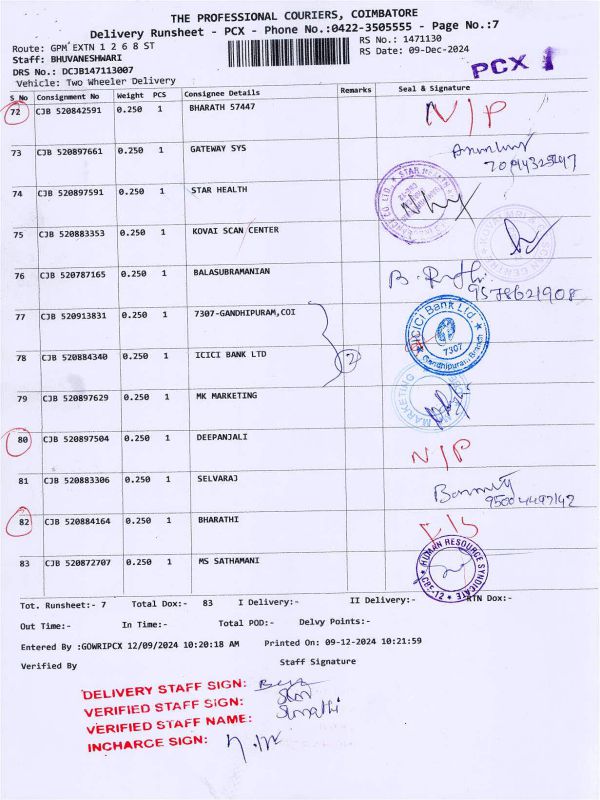 THE PROFESSIONAL COURIERS, COIMBATORE
Delivery Runsheet - PCX - Phone No.:0422-3505555 - Page No.:7
Route: GPM EXTN 1 2 6 8 ST
RS No.: 1471130
Staff: BHUVANESHWARI
RS Date: 09-Dec-2024
DRS No.: DCJB147113007
PCX 1
Vehicle: Two Wheeler Delivery
S No Consignment No Weight PCS Consignee Details Remarks Seal & Signature
72 CJB 520842591 0.250 1 BHARATH 57447 N/P
73 CJB 520897661 0.250 1 GATEWAY SYS
74 CJB 520897591 0.250 1 STAR HEALTH
75 CJB 520883353 0.250 1 KOVAI SCAN CENTER
76 CJB 520787165 0.250 1 BALASUBRAMANIAN
9578621908
77 CJB 520913831 0.250 1 7307-GANDHIPURAM,COI
ICICI Bank Ltd.
7307
Gandhipuram Branch
78 CJB 520884340 0.250 1 ICICI BANK LTD 2
79 CJB 520897629 0.250 1 MK MARKETING MARKETING
80 CJB 520897504 0.250 1 DEEPANJALI N/P
81 CJB 520883306 0.250 1 SELVARAJ
82 CJB 520884164 0.250 1 BHARATHI
83 CJB 520872707 0.250 1 MS SATHAMANI
HUMAN RESOURCE SYNDICATE
CBE-12
Tot. Runsheet:- 7 Total Dox:- 83 I Delivery:- II Delivery:- RTN Dox:-
Out Time:- In Time:- Total POD:- Delvy Points:-
Entered By :GOWRIPCX 12/09/2024 10:20:18 AM Printed On: 09-12-2024 10:21:59
Verified By Staff Signature
DELIVERY STAFF SIGN:
VERIFIED STAFF SIGN:
VERIFIED STAFF NAME:
INCHARGE SIGN: